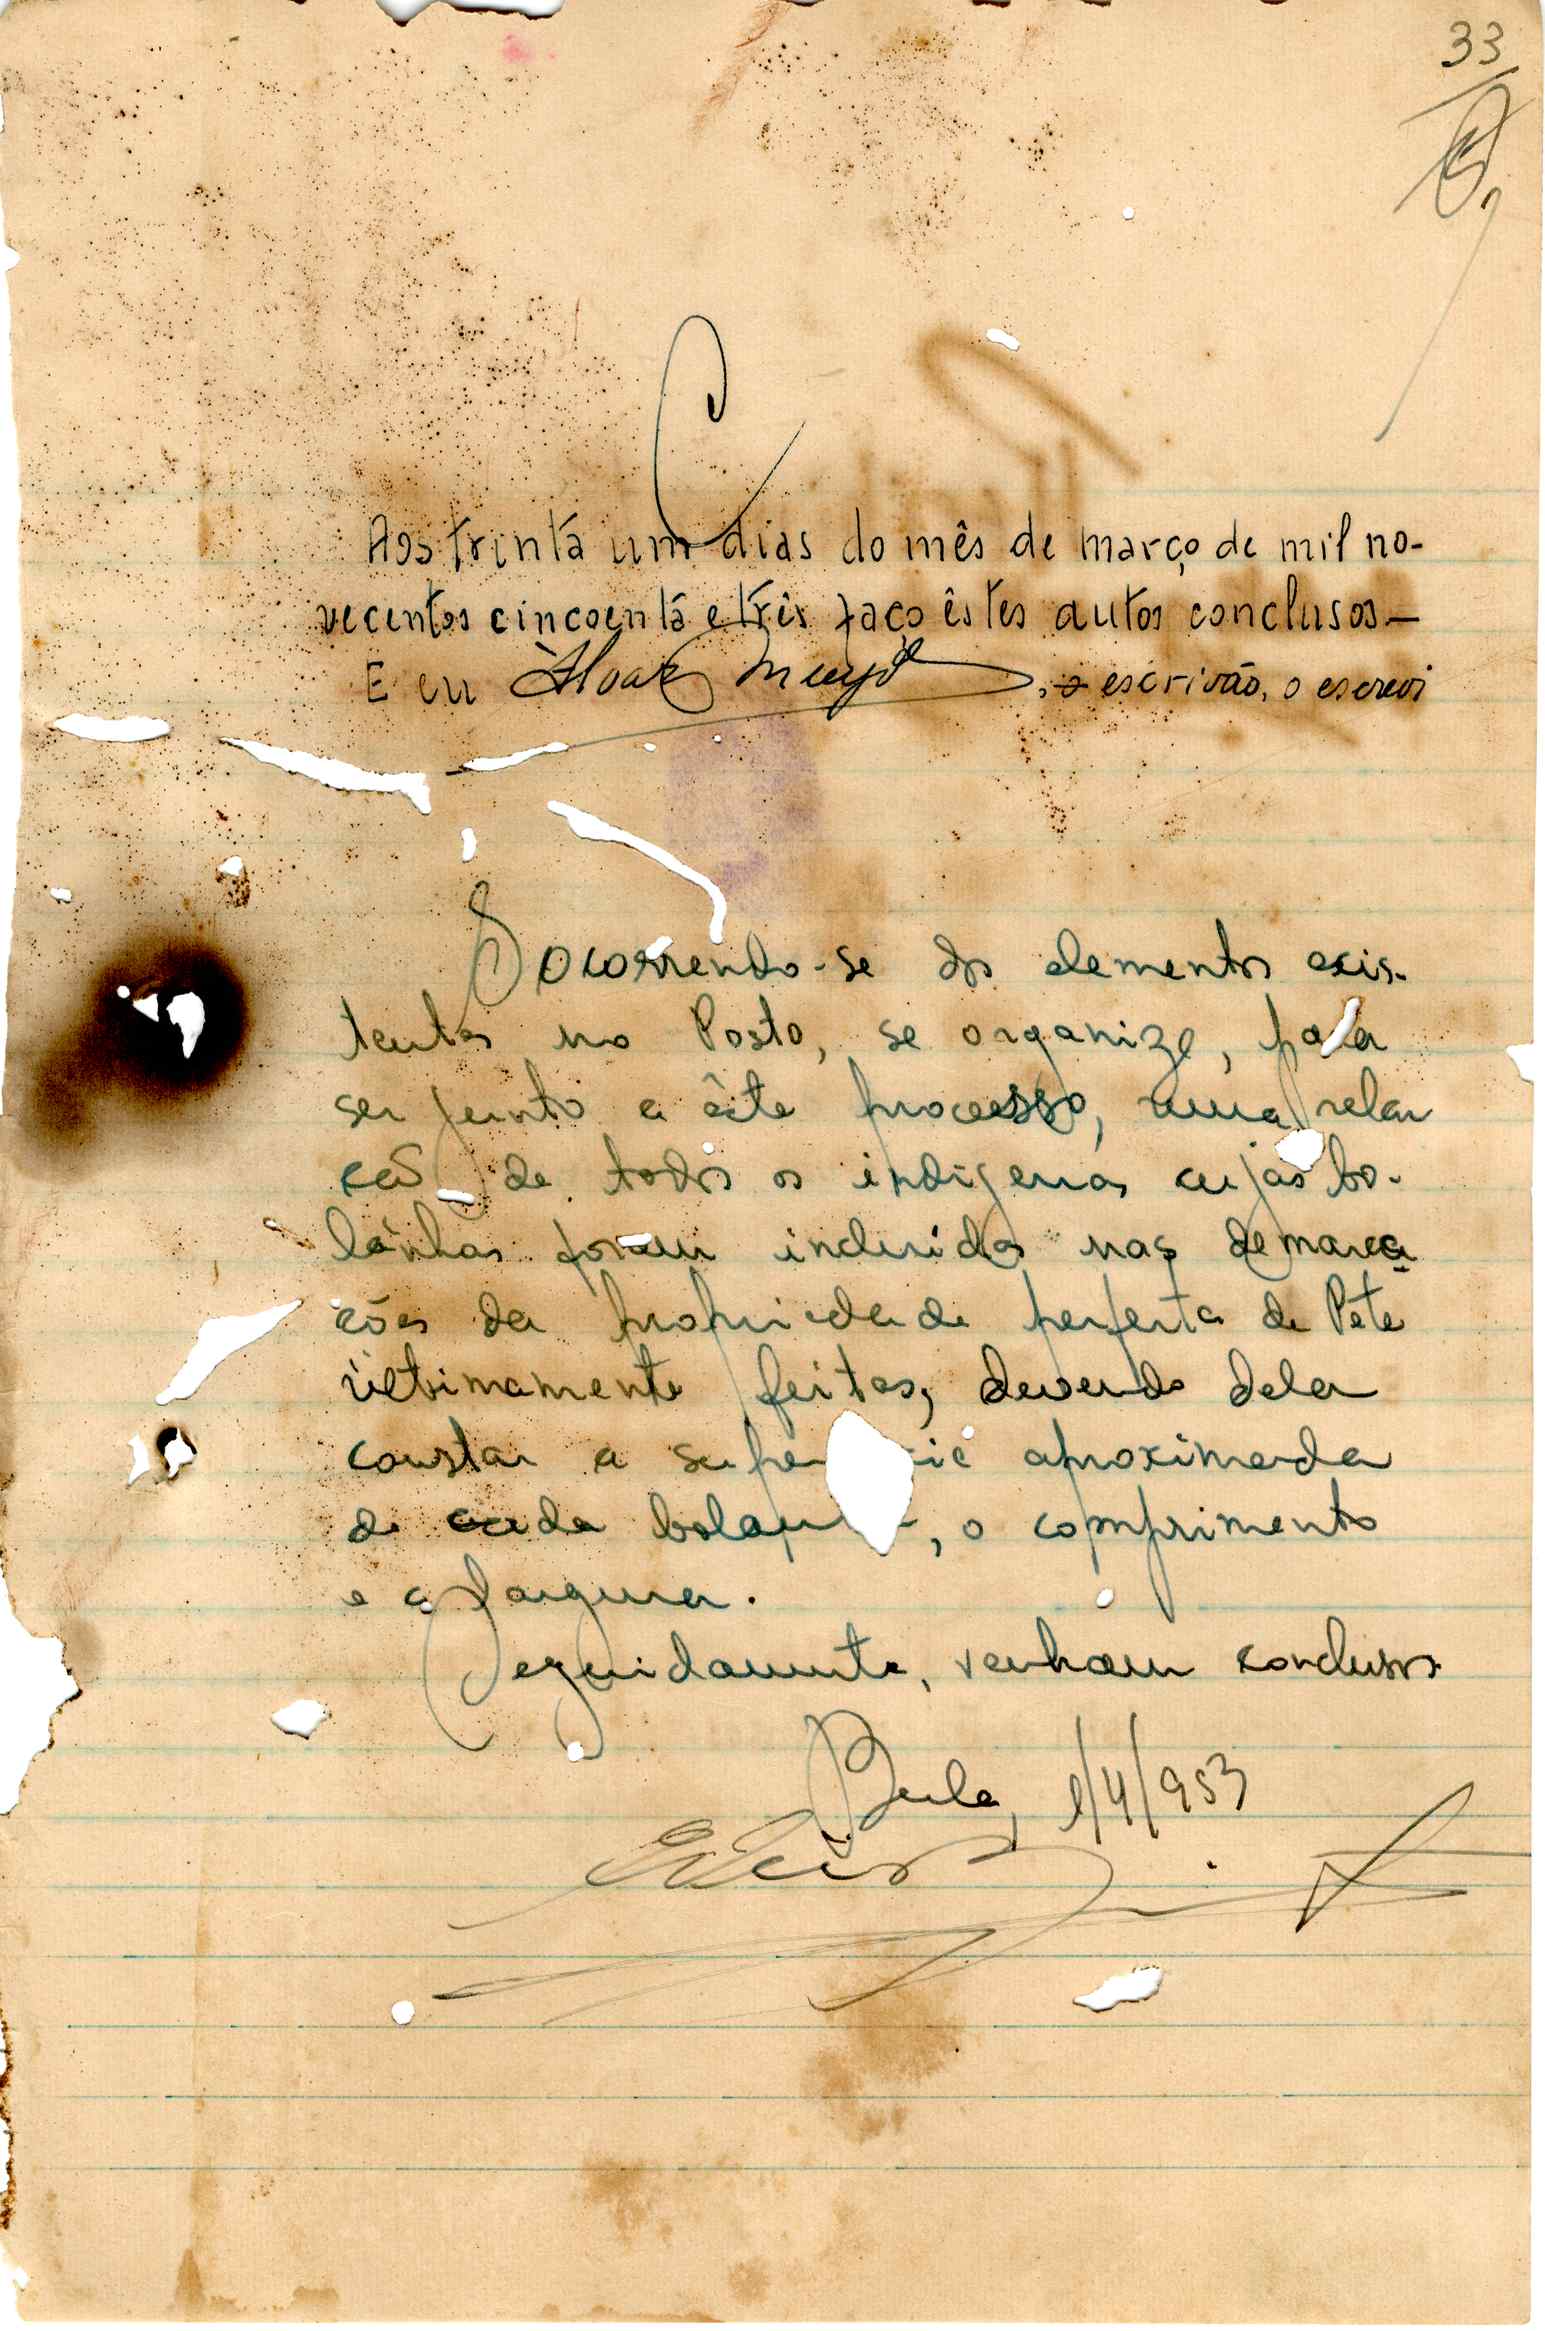 33
C
Aos trinta um dias do mês de março de mil no-
vecentos cincoenta e três faço êstes autos conclusos—
E eu Álvaro, o escrivão, o escrevi
Socorrendo-se dos elementos exis-
tentes no Posto, se organize, para
ser junto a êste processo, uma rela
ção de todos os indígenas cujas bo-
lanhas foram incluidas nas demarca
ções da propriedade perfeita de Pete
ùltimamente feitas, devendo dela
constar a supe cie aproximada
de cada bolan , o comprimento
e a largura.
Seguidamente, venham conclusos
Bula, 1/4/953